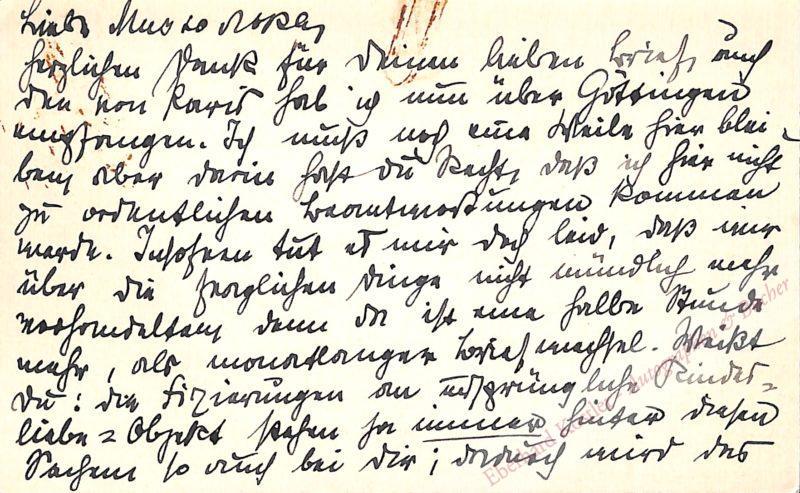 Liebe
herzlichen Dank für Deinen lieben Brief, auch
den von Paris hab ich nun über Göttingen
empfangen. Ich muß noch eine Weile hier blei-
ben, aber darin hast Du Recht, daß ich hier nicht
zu ordentlichen Beantwortungen kommen
werde. Insofern tut es mir doch leid, daß wir
über die fraglichen Dinge nicht mündlich mehr
verhandelten, denn da ist eine halbe Stunde
mehr, als monatlanger Briefwechsel. Weißt
Du: die Fixierungen an ursprüngliche Kindes-
liebe-Objekt stehen ja immer hinter diesen
Sachen, so auch bei Dir; dadurch wird das
Eberhard Köstler Autographen & Bücher